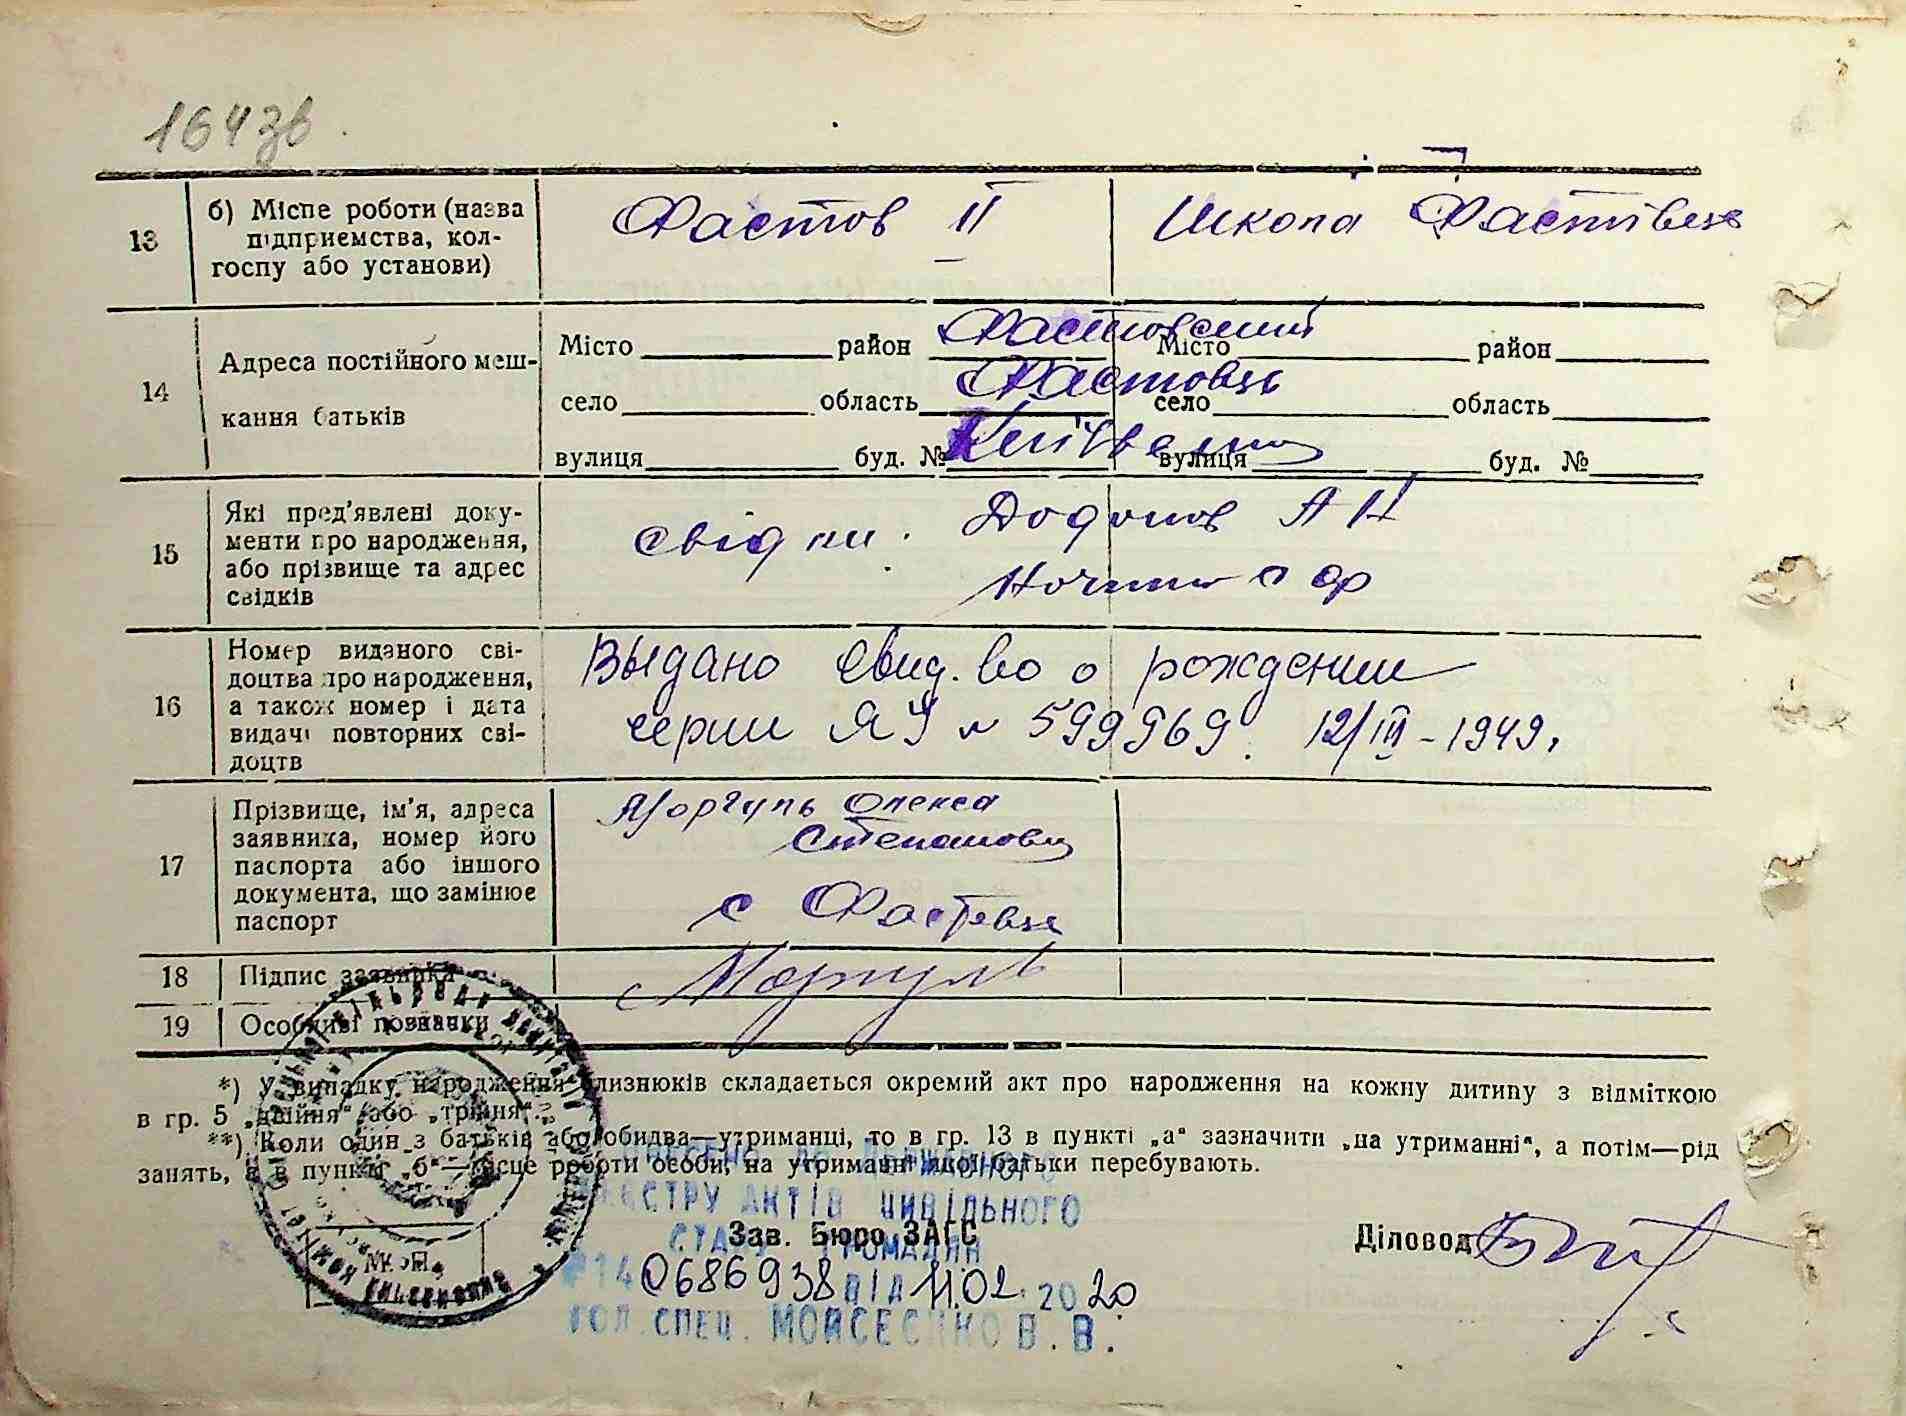 164 зв
13
б) Місце роботи (назва
підприємства, кол-
госпу або установи)
Фастов II
Школа Фастівець
14
Адреса постійного меш-
кання батьків
Місто район Фастовский Місто район
село область Фастовець село область
вулиця буд. № Київська вулиця буд. №
15
Які пред'явлені доку-
менти про народження,
або прізвище та адрес
свідків
свідки. Додонов А Н
16
Номер виданого сві-
доцтва про народження,
а також номер і дата
видачі повторних сві-
доцтв
Выдано свид.во о рождении
серии ЯУ № 599969. 12/III-1949.
17
Прізвище, ім'я, адреса
заявника, номер його
паспорта або іншого
документа, що замінює
паспорт
Моргуль Олекса
Степанович
с Фастівець
18 Підпис заявника Моргуль
19 Особливі позначки
*) У випадку народження близнюків складається окремий акт про народження на кожну дитину з відміткою
в гр. 5 „двійня“ або „трійня“.
**) Коли один з батьків або обидва—утриманці, то в гр. 13 в пункті „а“ зазначити „на утриманні“, а потім—рід
занять, а в пункті „б“—місце роботи особи, на утриманні якої батьки перебувають.
ВНЕСЕНО ДО ДЕРЖАВНОГО
РЕЄСТРУ АКТІВ ЦИВІЛЬНОГО
СТАНУ ГРОМАДЯН
Зав. Бюро ЗАГС
Діловод
№140686938 ВІД 11.02.2020
ГОЛ. СПЕЦ. МОЙСЕЄНКО В. В.
М. П.